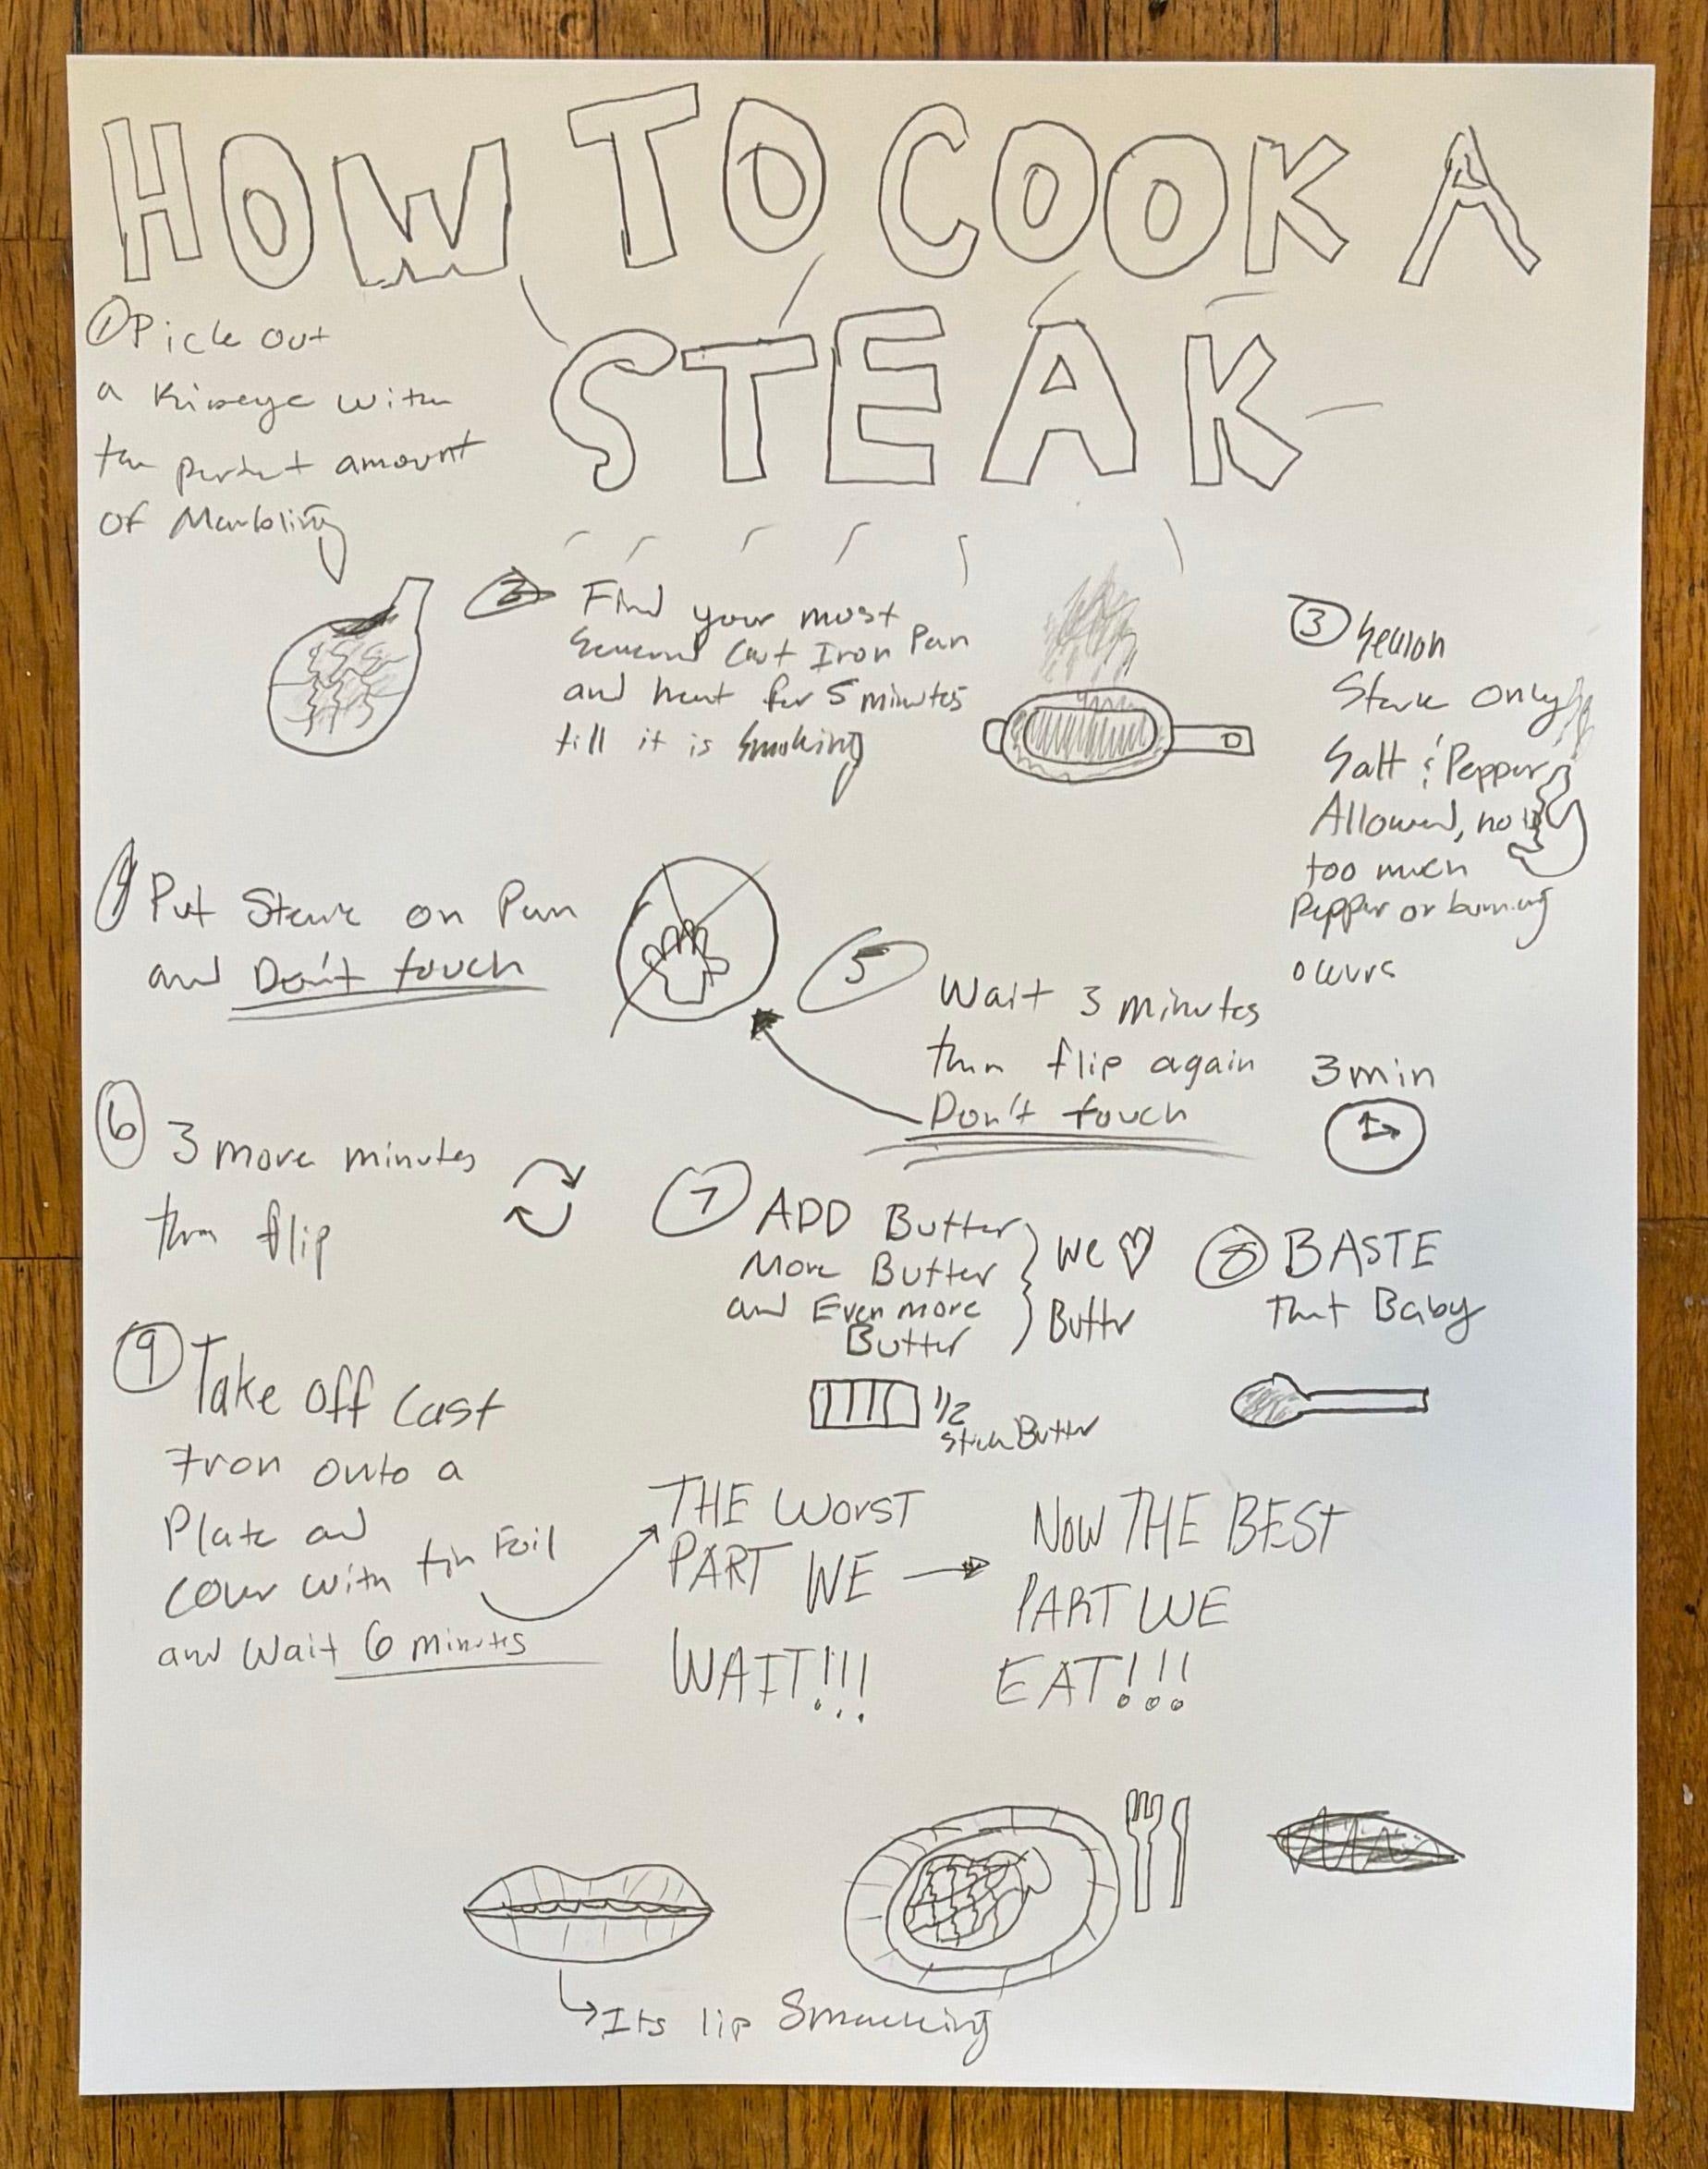 HOW TO COOK A
STEAK
① Pick out
a Ribeye with
the perfect amount
of Marbling
② Find your most
Seasoned Cast Iron Pan
and heat for 5 minutes
till it is Smoking
③ Season
Steak Only
Salt & Pepper
Allowed, not
too much
Pepper or burning
occurs
4 Put Steak on Pan
and Don't touch
⑤ Wait 3 minutes
then flip again
Don't touch
3 min
⑥ 3 more minutes
then flip
⑦ ADD Butter
More Butter
and Even more
Butter
We ♡
Buttr
1/2
Stick Butter
⑧ BASTE
That Baby
⑨ Take off Cast
Iron onto a
Plate and
Cover with tin Foil
and Wait 6 minutes
THE WORST
PART WE
WAIT!!!
NOW THE BEST
PART WE
EAT!!!
Its lip Smacking